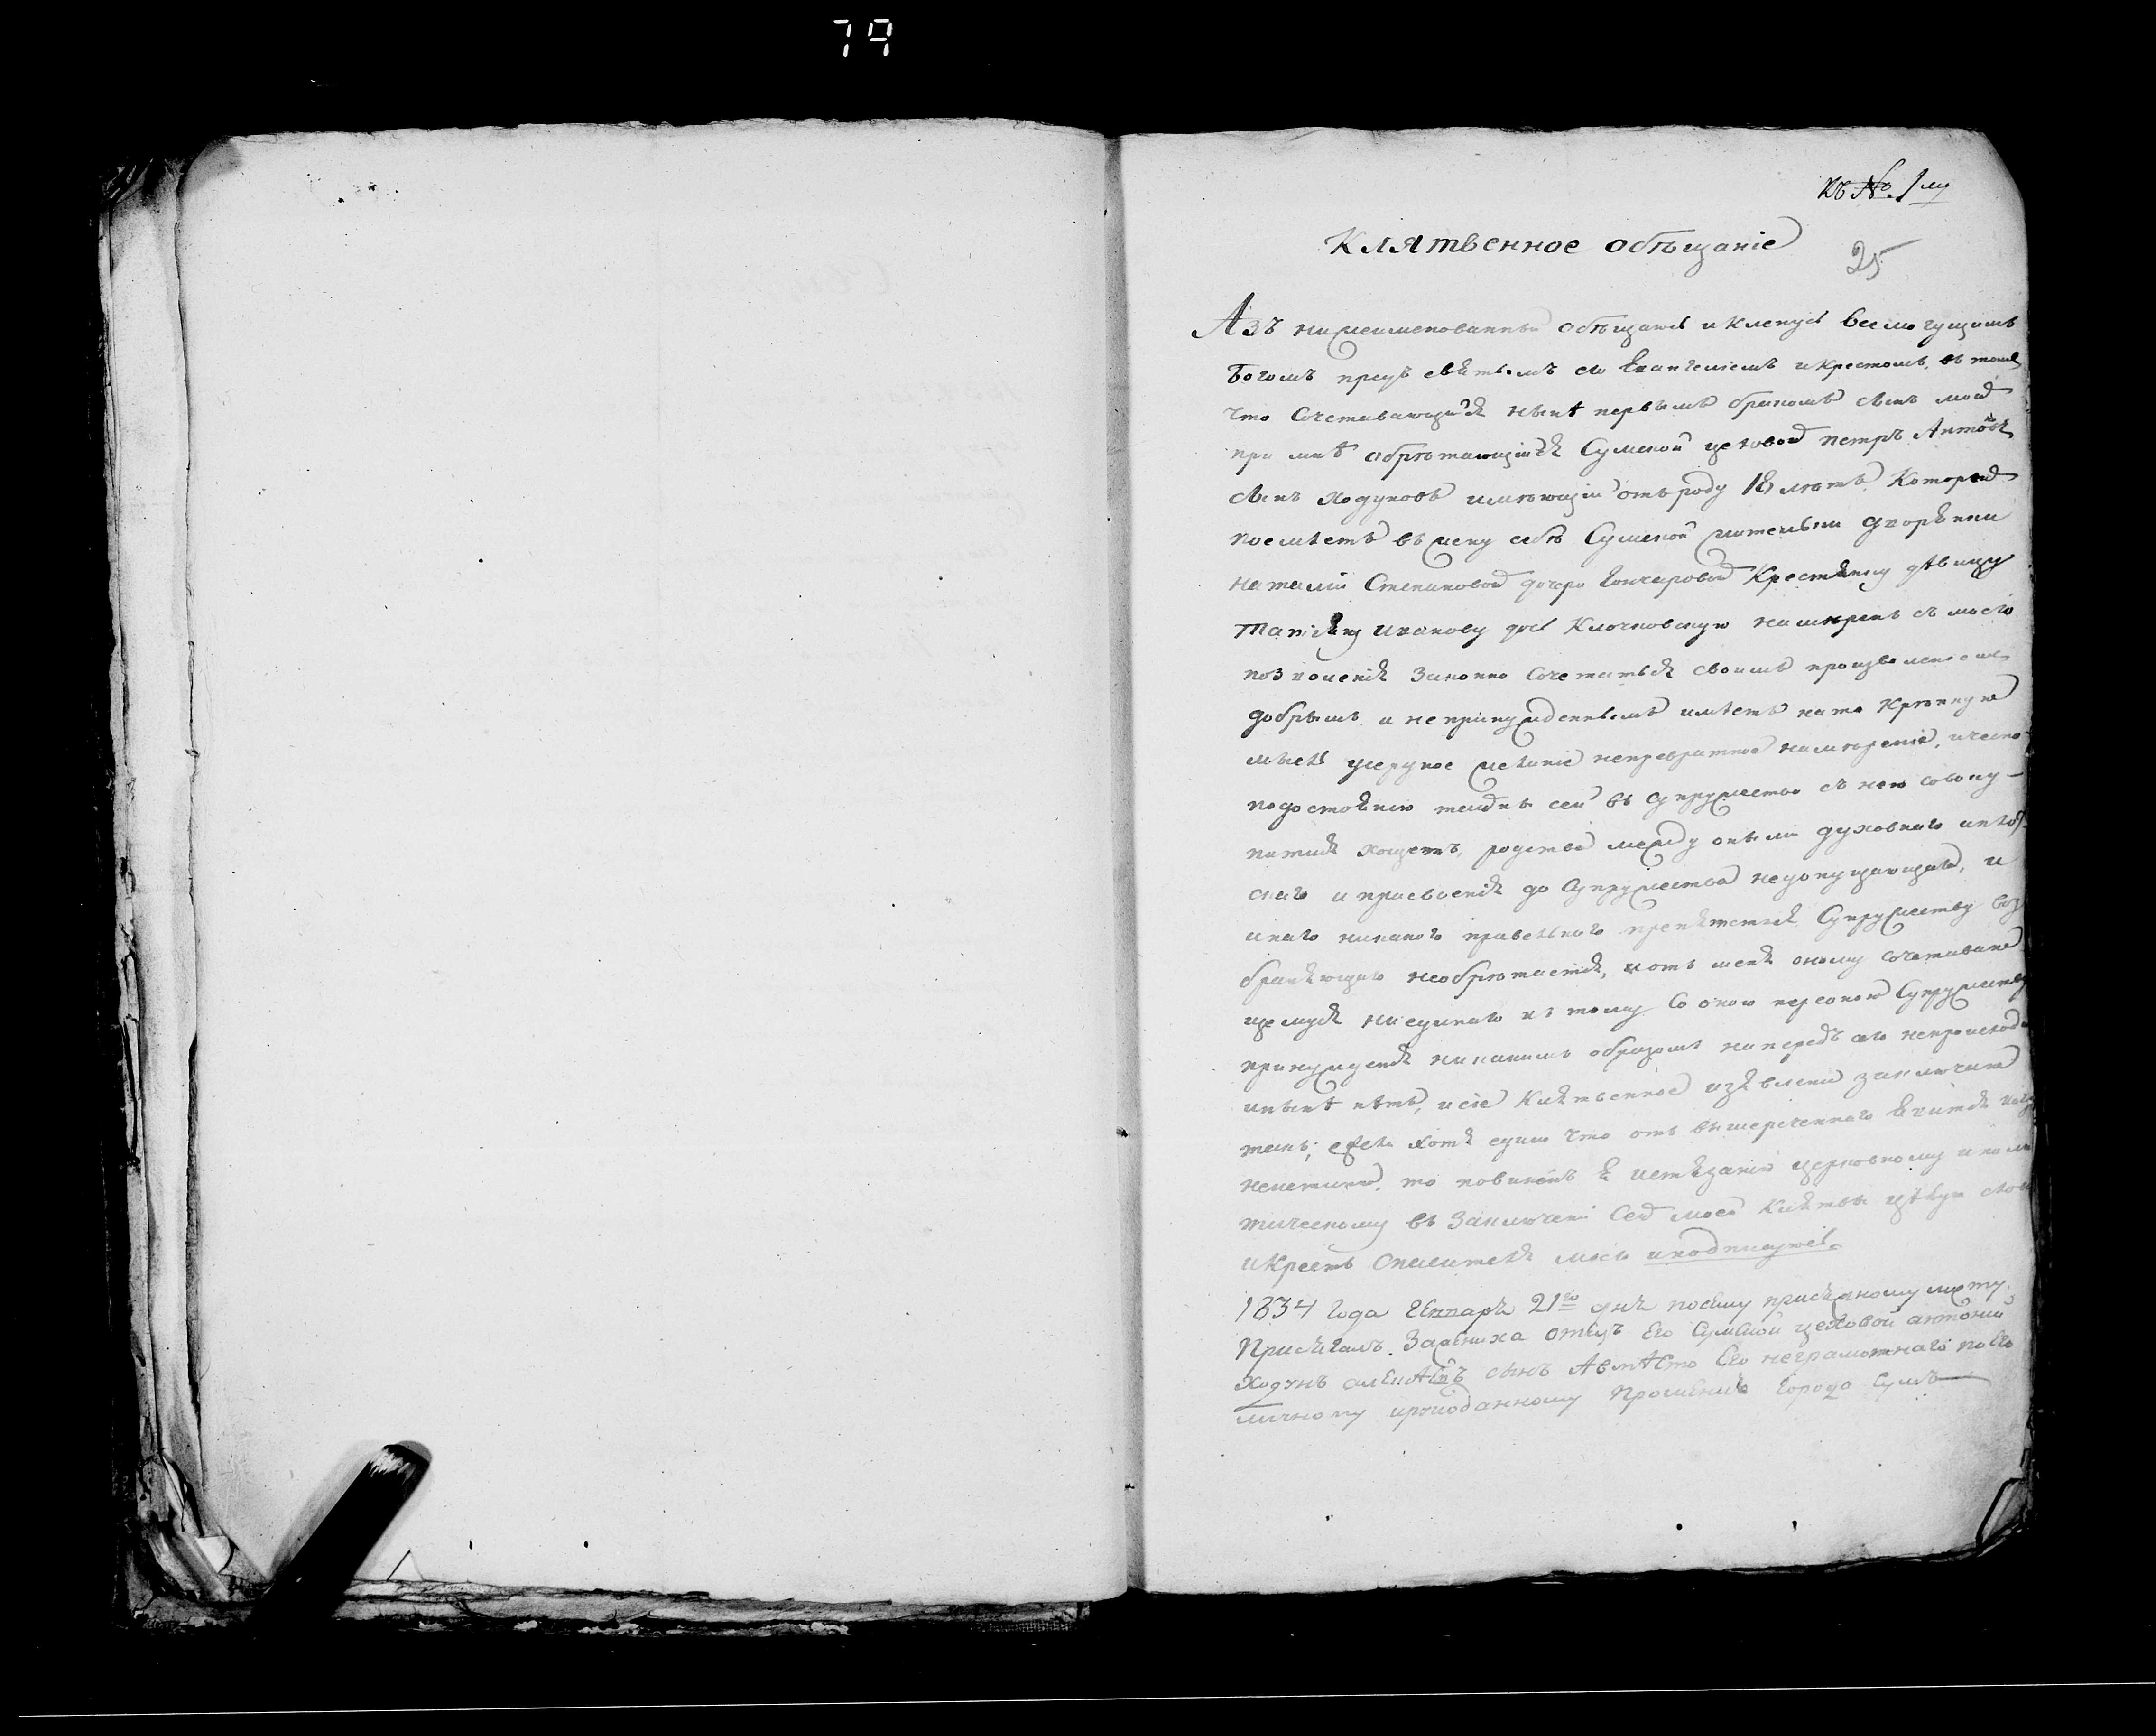 79
Къ №. 1му
Клятвенное обѣщаніе
25
Азъ нижеименованный обѣщаюсь и кленусь всемогущимъ
Богомъ предъ святымъ его Евангеліемъ и крестомъ, въ томъ
что сочетавающійся нынѣ первымъ бракомъ сынъ мой
при мнѣ обрѣтающійся Сумской цеховой петръ Антоновъ
сынъ Ходуновъ имѣющій отъ роду 18 лѣтъ, Которой
поемлетъ въ жену себѣ Сумской жительки дворянки
наталіи Степановой дочери Гончаровой Крестянку дѣвицу
Иванову дочь Клочковскую намѣренъ съ моего
позволенія законно сочетаться своимъ произволеніемъ
добрымъ и непринужденнымъ имѣетъ на то крѣпкую
мысль усердное желаніе непревратное намѣреніе, и чесно
по достоянію тайны сей въ супружество съ нею совоку-
питися хощетъ, родства между оными духовнаго и плот-
скаго и присвоенія до супружества недопущающаго, и
инаго никакого правелнаго препятствія супружеству воз
браняющаго необрѣтается, и отъ меня оному сочетаваю
щемуся ни единаго къ тому со оною персоною супружеству
принужденія никакимъ образомъ напередъ сего непроисход
и нынѣ нѣтъ, и сіе клятвенное изявленіе заключаю
тѣмъ; если хотя едино что отъ вышереченнаго явится
неистинно, то повиненъ я истязанію церковному и поли
тическому въ заключеніи сей моей клятвы цѣлую слова
и крестъ спасителя моего и подписуюсь.
1834 года Генваря 21го дня по сему присяжному листу
Присягалъ Зажениха отецъ Его Сумской цеховой антоній
Ходунъ сынъ А вмѣсто Его неграмотнаго по Его
личному прошенію города Сумъ